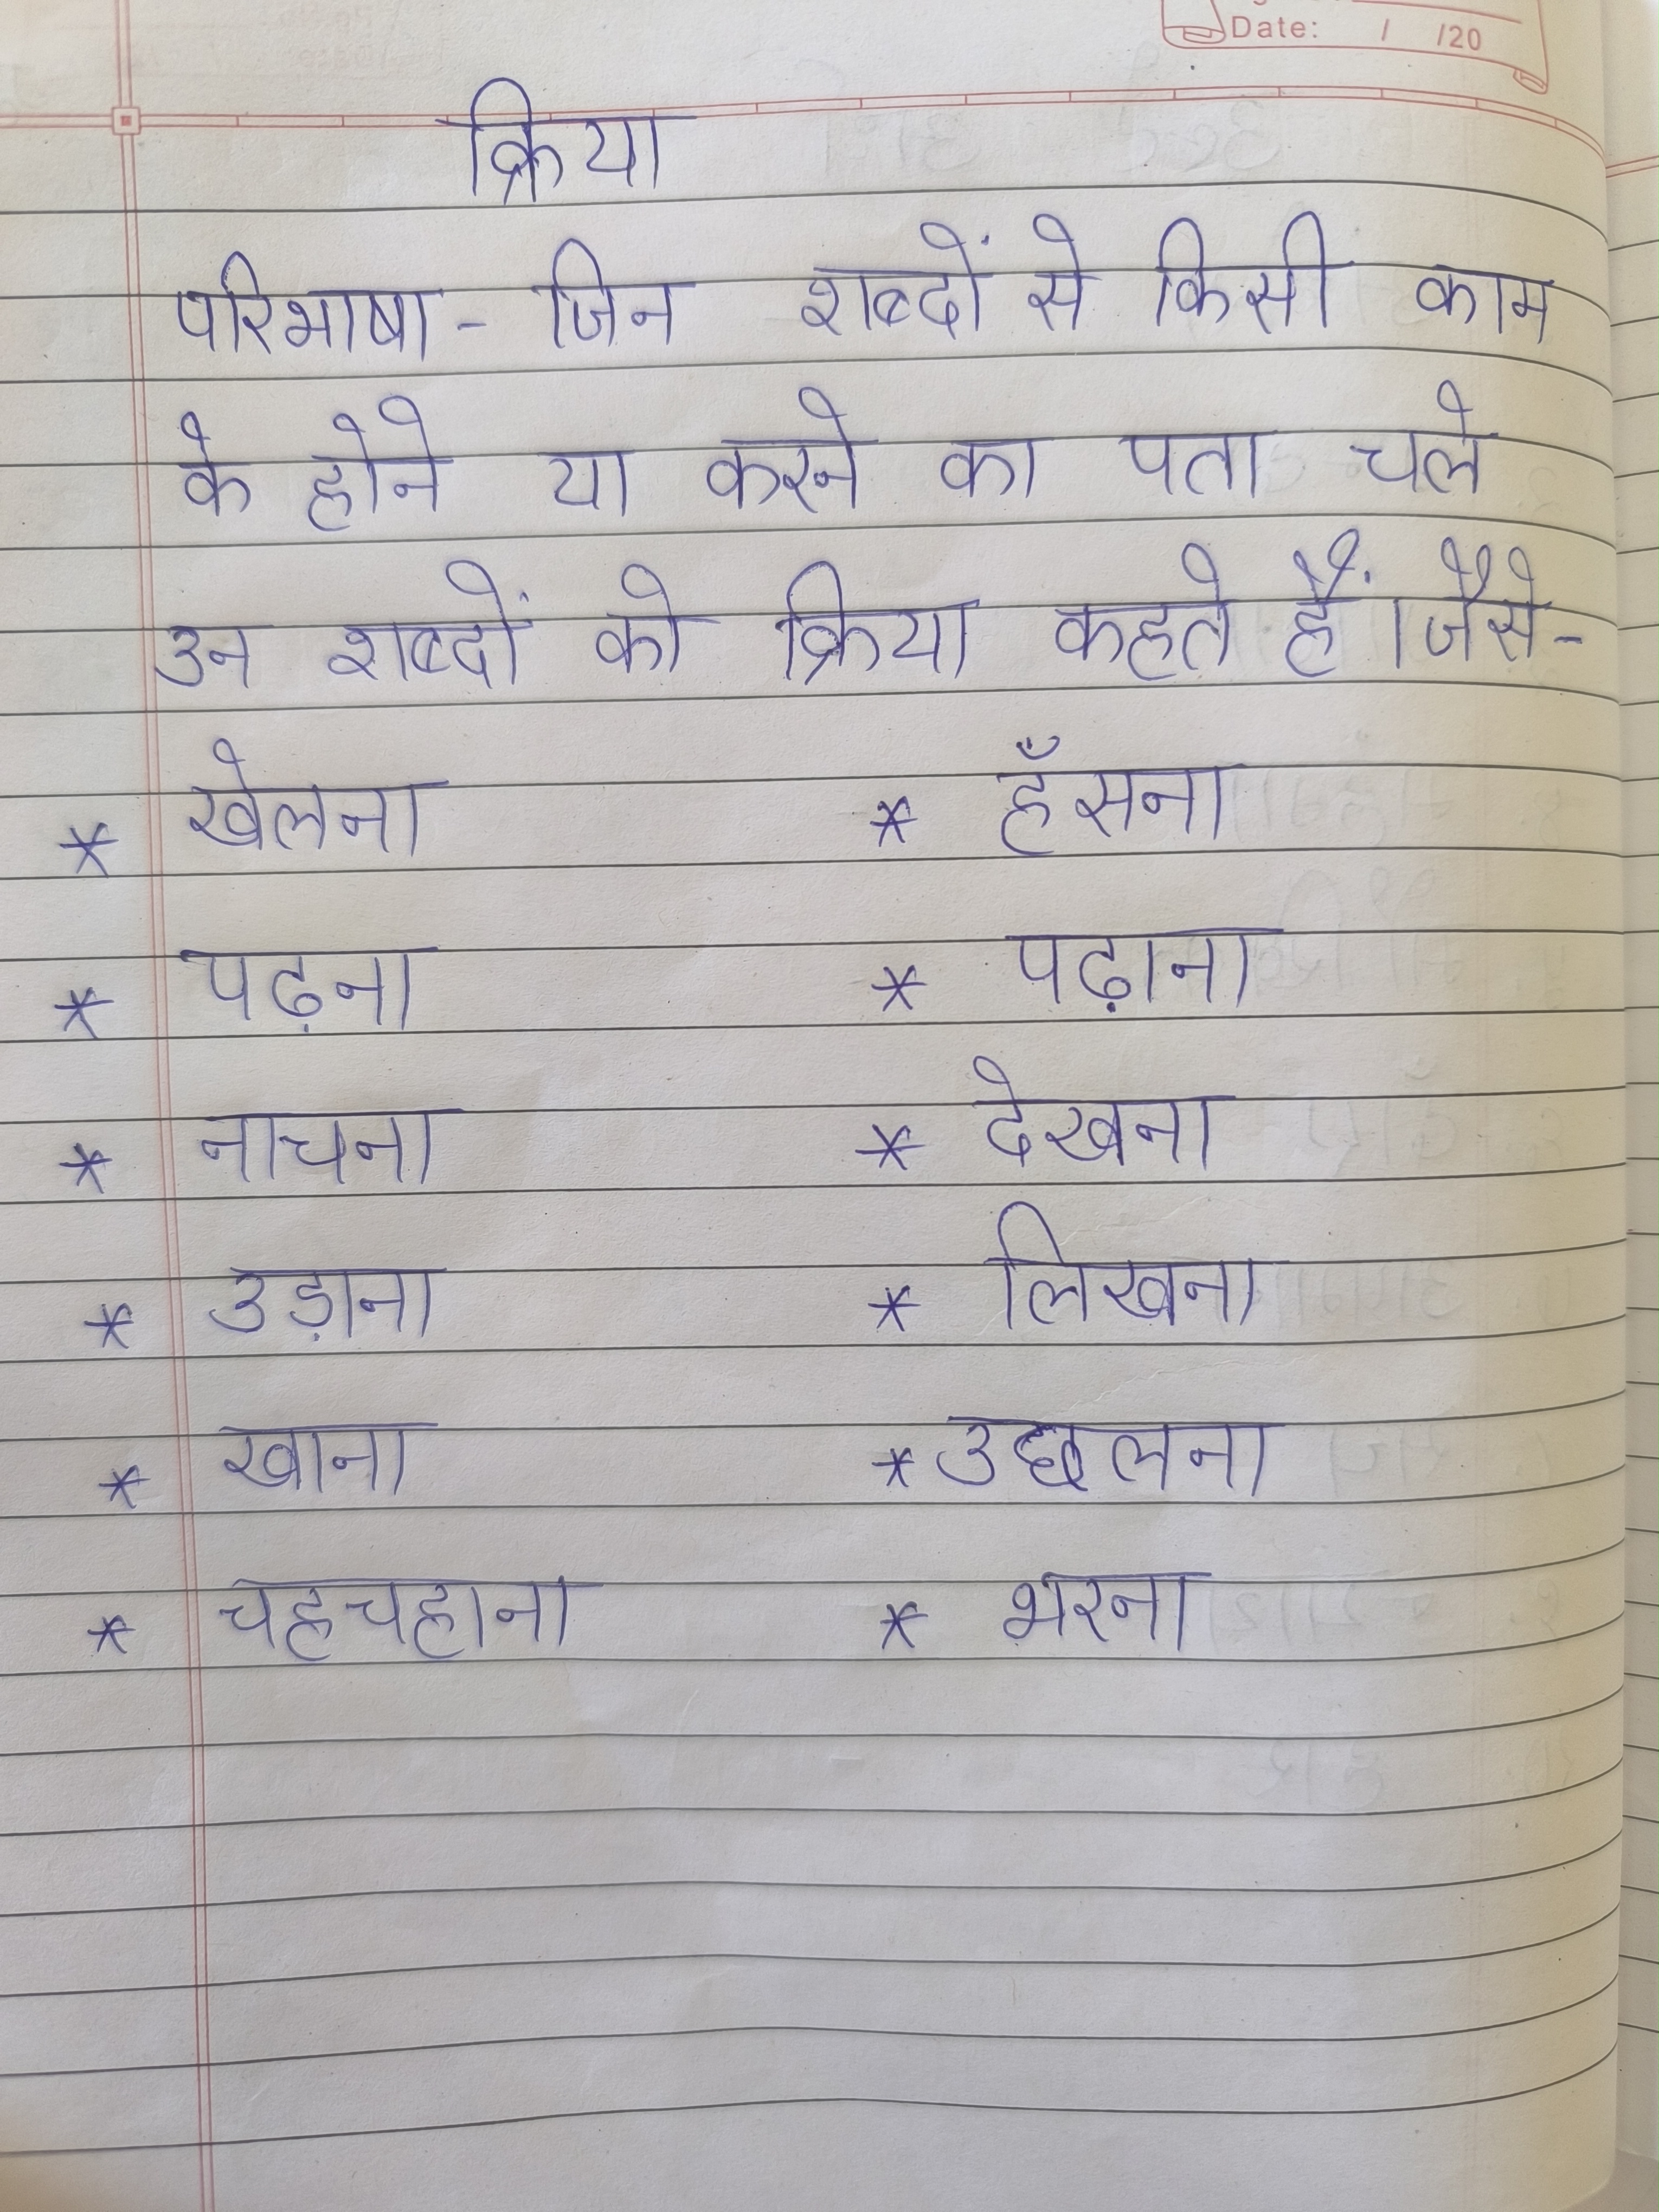 Date: / /20
क्रिया
परिभाषा - जिन शब्दों से किसी काम
के होने या करने का पता चले
उन शब्दों को क्रिया कहते हैं । जैसे -
* खेलना * हँसना
* पढ़ना * पढ़ाना
* नाचना * देखना
* उड़ाना * लिखना
* खाना * उछलना
* चहचहाना * भरना